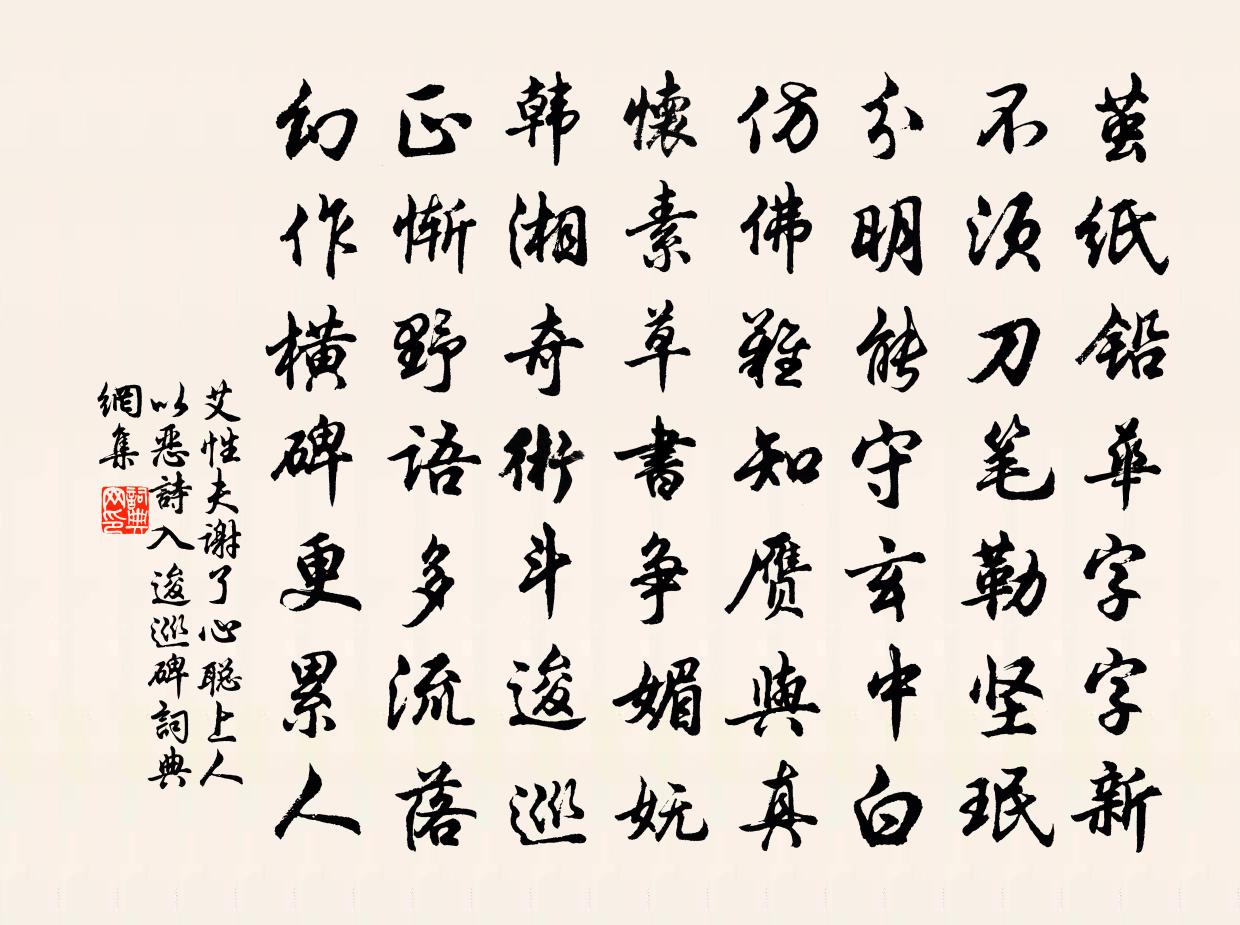 茧纸铅華字字新
不须刀笔勒坚珉
分明能守玄中白
仿佛難知赝與真
懷素草書争媚妩
韩湘奇術斗逡巡
正惭野语多流落
幻作横碑更累人
艾性夫谢了心聪上人
以恶詩入逡巡碑詞典
網集
詞典
网印